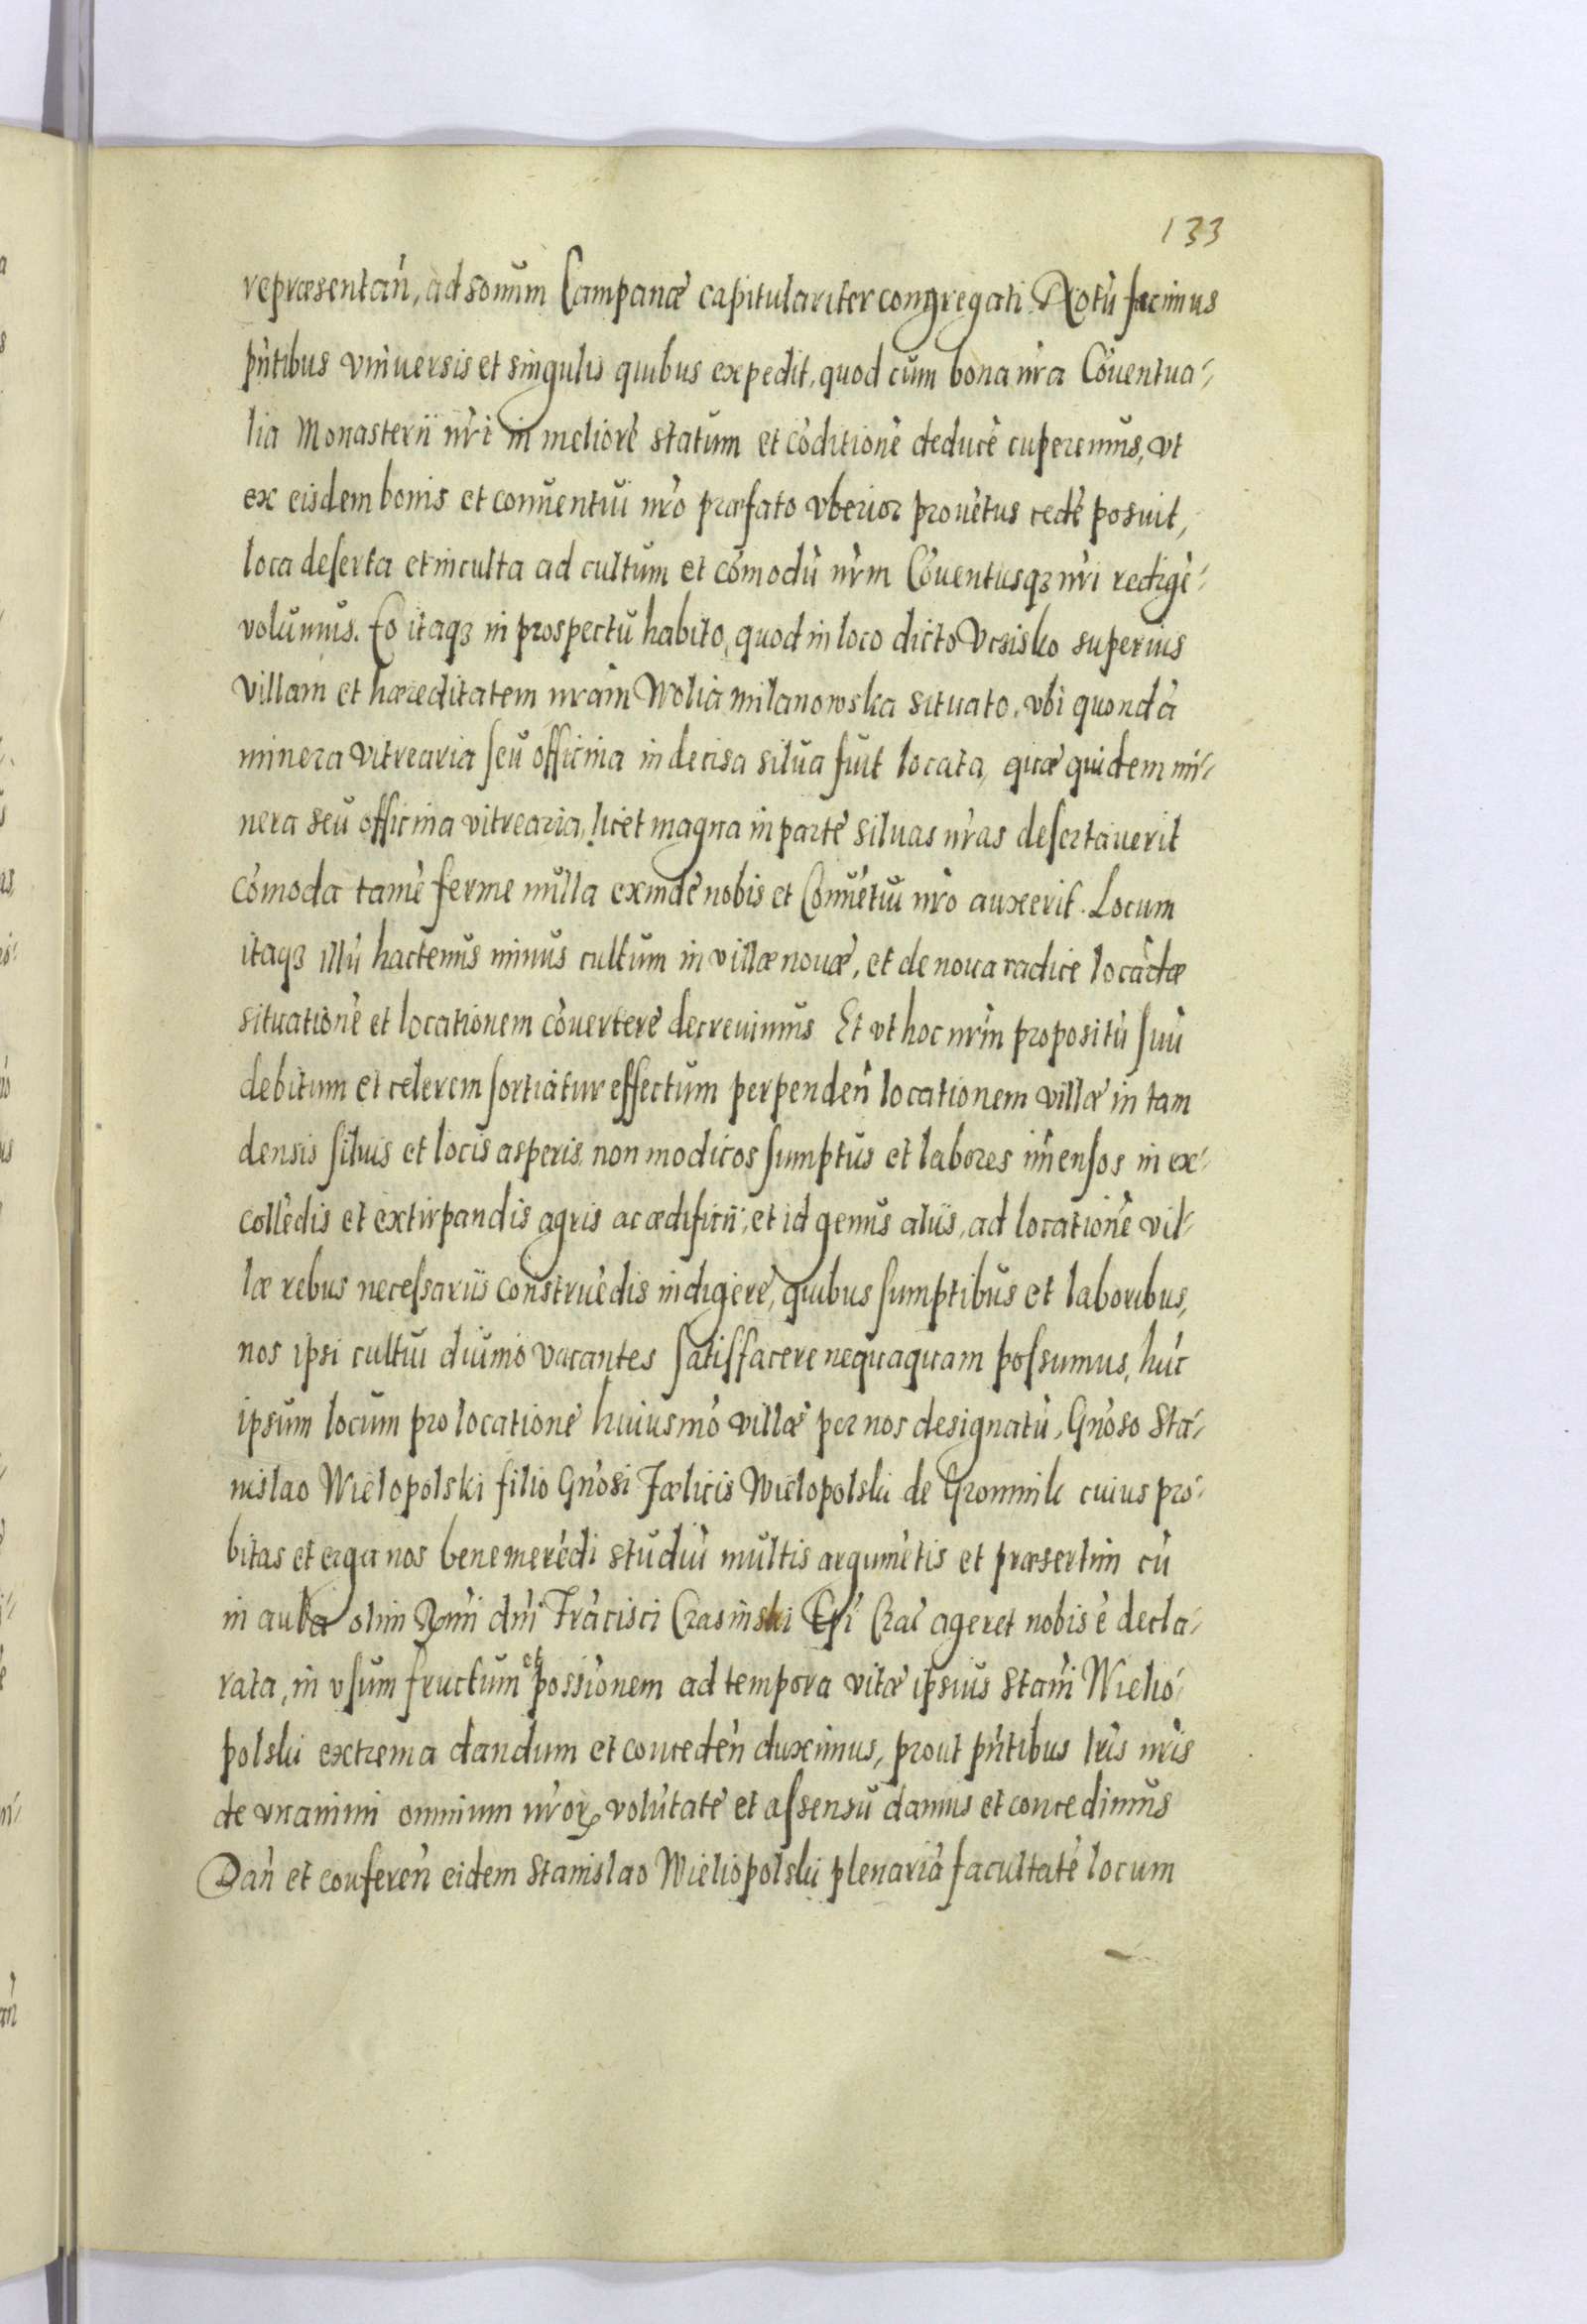 133
repræsentań, ad sonum Campanæ capitulariter congregati Notū facimus
pn̄tibus vniuersis et singulis quibus expedit, quod cum bona nr̄a Cōuentua-
lia Monasterii nr̄i in meliorē statum et cōditionē deducē cuperemus, vt
ex eisdem bonis et conuentui nr̄o præfato vberior prouētus cedē posuit,
loca deserta et inculta ad cultum et cōmodū nr̄m Cōuentusqꝫ nr̄i redigē-
volumus. Eo itaqꝫ in prospectū habito, quod in loco dicto Vrsisko superius
villam et hæreditatem nrām Woliā milanowska situato, vbi quondā
minera vitrearia seu officina in decisa silua fuit locata, quæ quidem mi-
nera seu officina vitrearia, licet magna in partē siluas nr̄as desertauerit
cōmoda tamē ferme nulla exindē nobis et Conuētui nr̄o auxerit. Locum
itaqꝫ illū hactenus minus cultum in villæ nouæ, et de noua radice locādæ
situationē et locationem cōuerterē decreuimus Et vt hoc nrm̄ propositū suū
debitum et celerem sortiatur effectum perpendeń locationem villæ in tam
densis siluis et locis asperis, non modicos sumptus et labores im̄ensos in ex-
collēdis et extirpandis agris ac ædificiī, et id genus aliis, ad locationē vil-
læ rebus necessariis construēdis indigerē, quibus sumptibus et laboribus,
nos ipsi cultui diuino vacantes satisfacere nequaquam possumus, hūc
ipsum locum pro locationē huiusmō villæ per nos designatū, Gn̄oso Sta-
nislao Wielopolski filio Gn̄osi Fœlicis Wielopolski de Gromnik cuius pro-
bitas et erga nos benemerēdi studiū multis argumētis et præsertim cū
in aula olim Rm̄i dn̄i Frācisci Crasinski Ep̄i Cra͞c ageret nobis ē decla-
rata, in vsum fructum et possiōnem ad tempora vitæ ipsius Stan̄i Wielio-
polski extrema dandum et conceden̄ duximus, prout pn̄tibus lr̄is nr̄is
de vnanimi omnium nr̄oꝝ volūtatē et assensu damus et concedimus
Dań et conferen̄ eidem Stanislao Wieliopolski plenariā facultatē locum